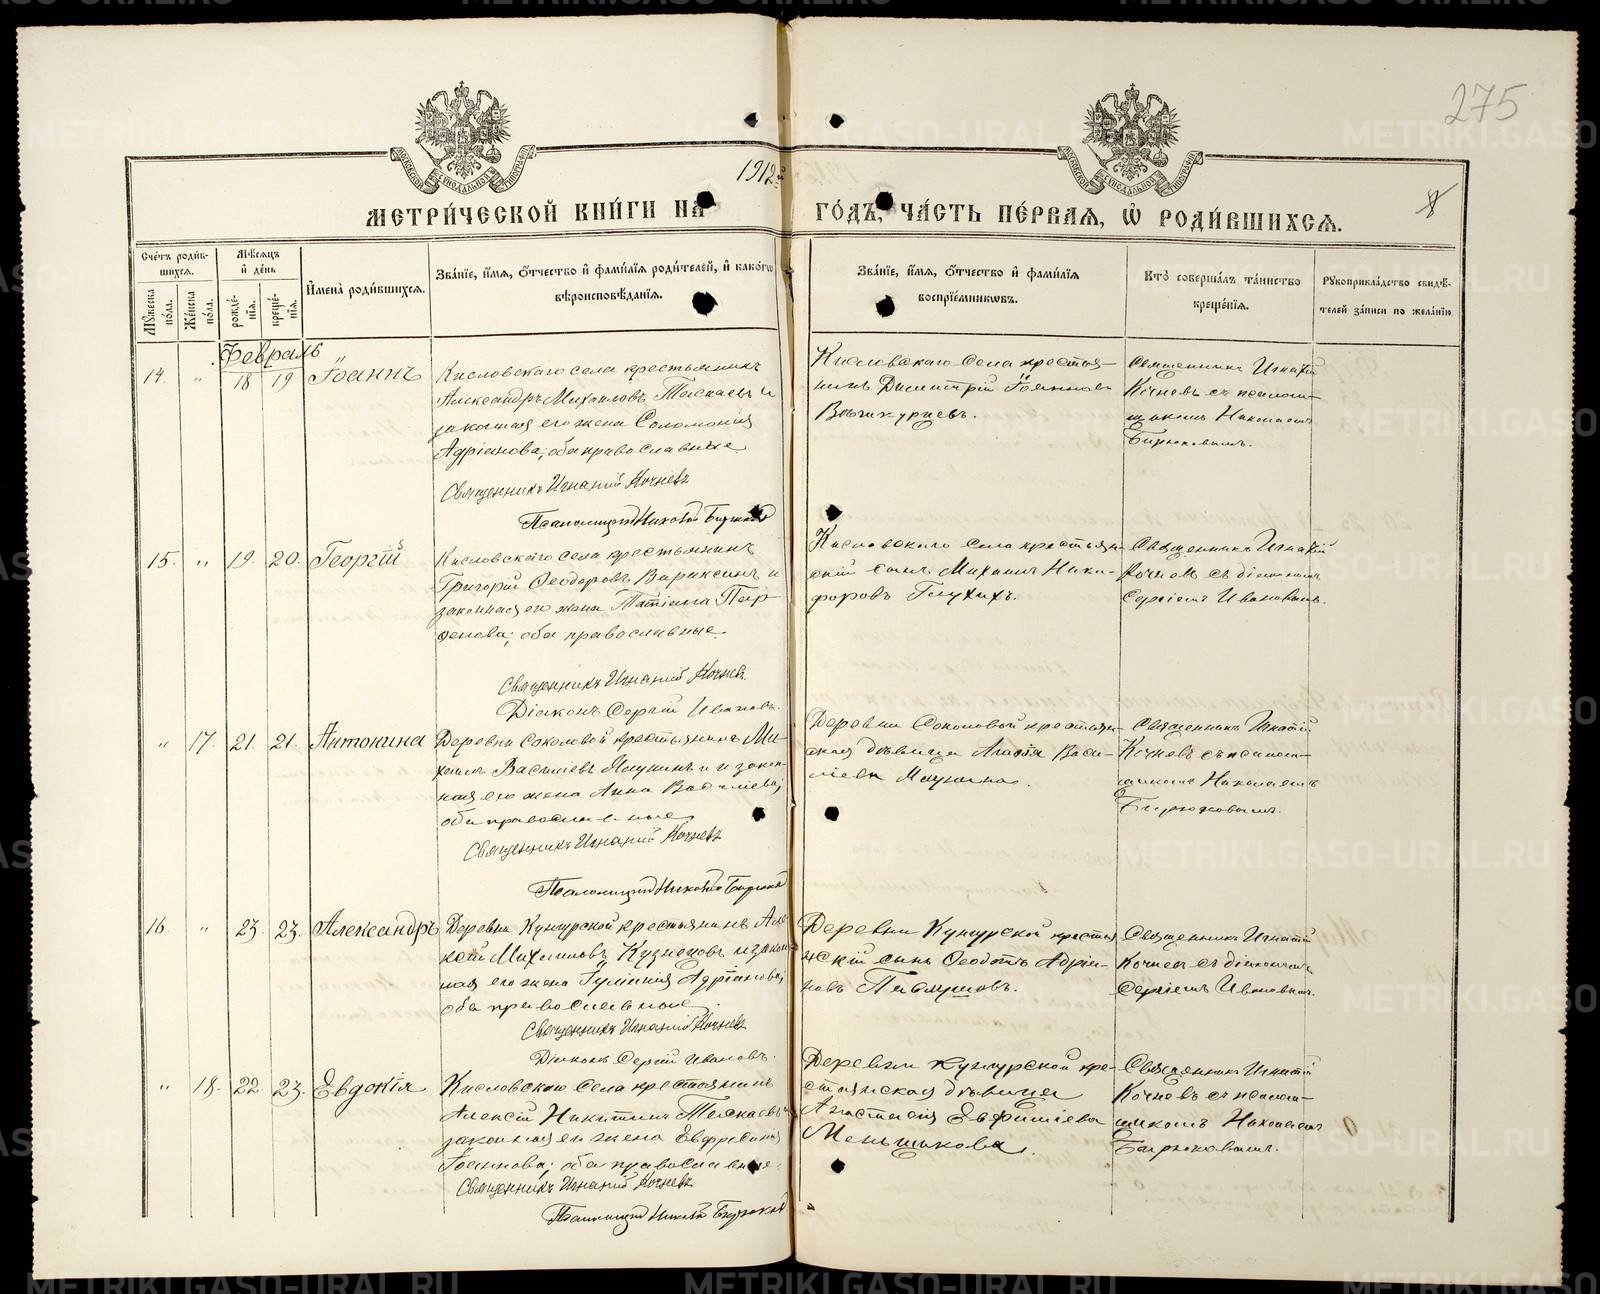 275
1912
МЕТРИ́ЧЕСКОЙ КНИ́ГИ НА ГО́ДЪ, ЧА́СТЬ ПЕ́РВАЯ, Ѡ҆ РОДИ́ВШИХСЯ.
8
Сче́тъ роди́вшихся.
Мꙋ́жеска по́ла.
Же́нска по́ла.
Мѣ́сяцъ и҆ де́нь
рожде́нїя.
креще́нїя.
И҆мена̀ роди́вшихся.
Зва́нїе, и҆́мя, ѻ҆́тчество и҆ фами́лїя роди́телей, и҆ како́гѡ
вѣроисповѣ́данїя.
Зва́нїе, и҆́мя, ѻ҆́тчество и҆ фами́лїя
воспрїе́мникѡвъ.
Кто̀ соверша́лъ та́инство
креще́нїя.
Рꙋкоприкла́дство свидѣ́-
телей за́писи по жела́нїю
Февраль
14. " 18 19 Іоаннъ
Кисловскаго села крестьянинъ
Александръ Михаиловъ Таскаевъ и
законная его жена Соломонія
Адріанова; оба православные
Священникъ Игнатій Кочневъ
Псаломщикъ Николай Бирюковъ
Кисловскаго села крестья-
нинъ Димитрій Іоанновъ
Священникъ Игнатій
Кочневъ съ псалом-
щикомъ Николаемъ
Бирюковымъ.
15. " 19. 20. Георгій
Кисловскаго села крестьянинъ
Григорій Ѳеодоровъ Вараксинъ и
законная его жена Татіана Пар-
ѳенова; оба православные
Священникъ Игнатій Кочневъ
Діаконъ Сергій Ивановъ.
Кисловскаго села крестьян-
скій сынъ Михаилъ Ники-
форовъ Глухихъ.
Священникъ Игнатій
Кочневъ съ діакономъ
Сергіемъ Ивановымъ.
" 17. 21. 21. Антонина
Деревни Соколовой крестьянинъ Ми-
хаилъ Васильевъ и закон-
ная его жена Анна Васильева;
оба православные
Священникъ Игнатій Кочневъ
Псаломщикъ Николай Бирюковъ
Деревни Соколовой крестьян-
ская дѣвица Агаѳія Васи-
ліева
Священникъ Игнатій
Кочневъ съ псалом-
щикомъ Николаемъ
Бирюковымъ.
16. " 23. 23. Александръ
Деревни Кунгурской крестьянинъ Алек-
сѣй Михаиловъ Кузнецовъ и закон-
ная его жена Іуліанія Адріанова;
оба православные.
Священникъ Игнатій Кочневъ
Діаконъ Сергій Ивановъ.
Деревни Кунгурской крестья-
нскій сынъ Ѳеодотъ Адріа-
новъ
Священникъ Игнатій
Кочневъ съ діакономъ
Сергіемъ Ивановымъ.
" 18. 22. 23. Евдокія
Кисловскаго села крестьянинъ
Алексій Никитинъ Таскаевъ и
законная его жена Евфросинія
Іоаннова; оба православные.
Священникъ Игнатій Кочневъ
Псаломщикъ Николай Бирюковъ
Деревни Кунгурской кре-
стьянская дѣвица
Анастасія Евфиміева
Меньшикова.
Священникъ Игнатій
Кочневъ съ псалом-
щикомъ Николаемъ
Бирюковымъ.
METRIKI.GASO-URAL.RU